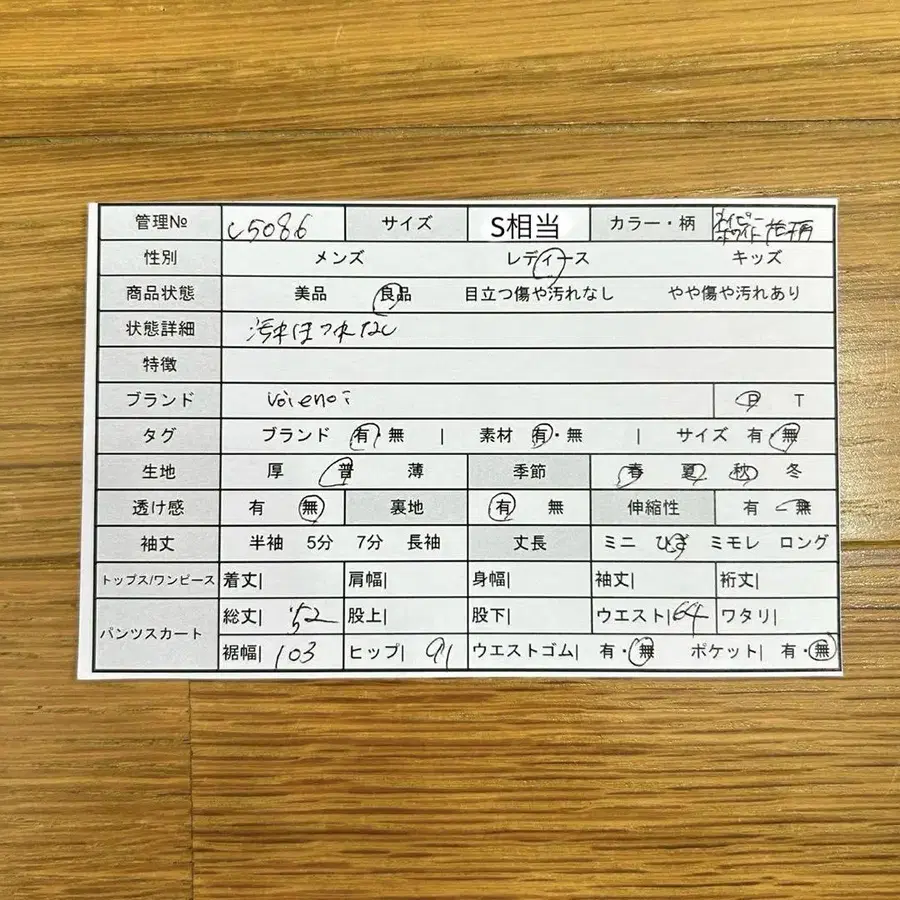 管理№ c5086 サイズ S相当 カラー・柄 ネイビー ホワイト 花柄
性別 メンズ レディース キッズ
商品状態 美品 良品 目立つ傷や汚れなし やや傷や汚れあり
状態詳細 汚れほつれなし
特徴
ブランド Voienoi P T
タグ ブランド 有・無 | 素材 有・無 | サイズ 有・無
生地 厚 普 薄 季節 春 夏 秋 冬
透け感 有 無 裏地 有 無 伸縮性 有 無
袖丈 半袖 5分 7分 長袖 丈長 ミニ ひざ ミモレ ロング
トップス/ワンピース 着丈| 肩幅| 身幅| 袖丈| 裄丈|
パンツスカート 総丈| 52 股上| 股下| ウエスト| 64 ワタリ|
裾幅| 103 ヒップ| 91 ウエストゴム| 有・無 ポケット| 有・無